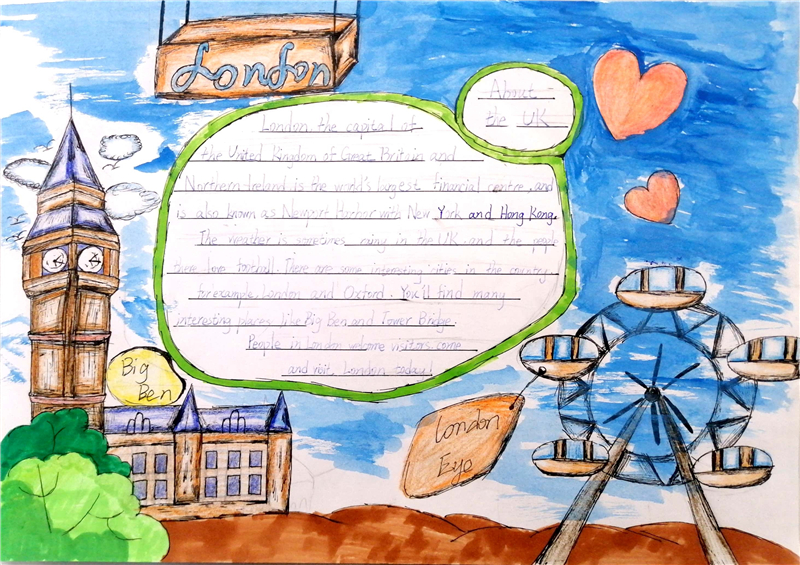 London
About
the UK
London the capital of
the United Kingdom of Great Britain and
Northern Ireland is the world's largest financial centre, and
is also known as Newport Harbor with New York and Hong Kong.
The weather is sometimes rainy in the UK. and the people
there love football. There are some interesting cities in the country.
for example, London and Oxford. You'll find many
interesting places like Big Ben and Tower Bridge.
People in London welcome visitors. come
and visit London today!
Big
Ben
London
Eye